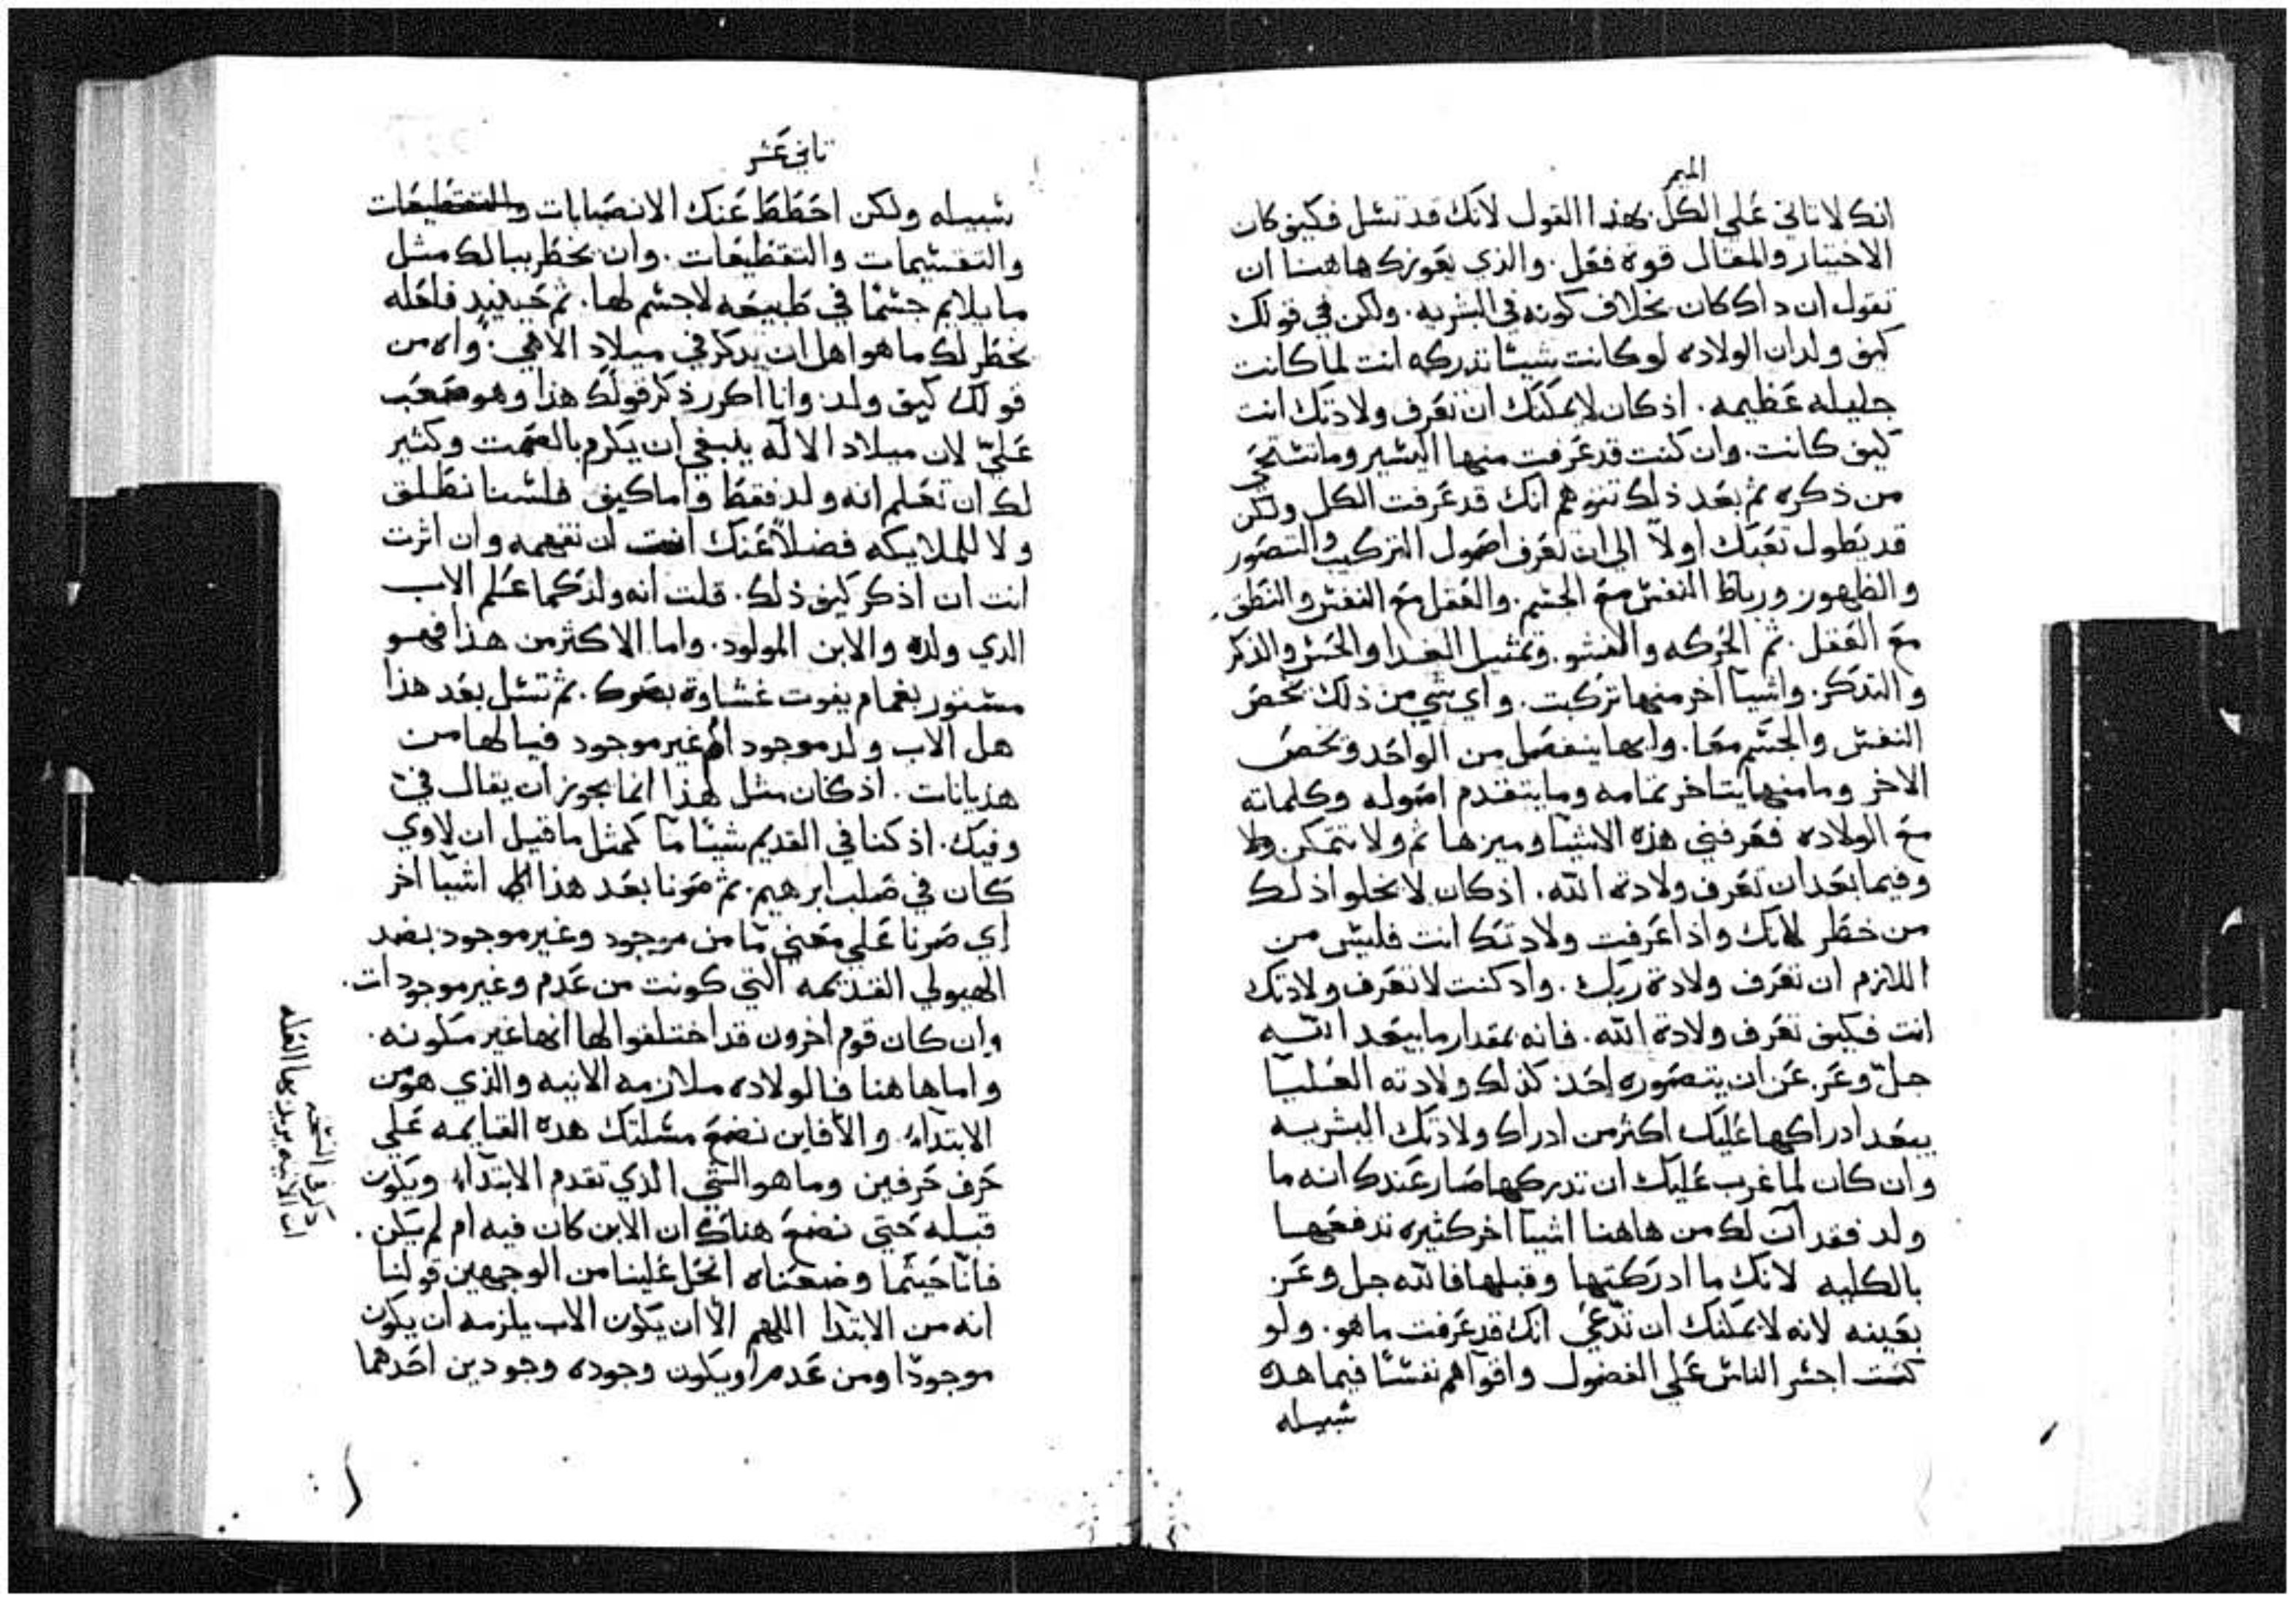 الميمر
انك لا تاتي عَلي الكل بهذا القول لانك قد تسل فكيف كان
الاختيار والمقال قوه فعَل. والذي يعَوزك هاهنا ان
تقول ان داك كان بخلاف كونه في البشريه. ولكن في قولك
كيف ولد ان الولاده لو كانت شيئا تدركه انت لما كانت
جليله عَظيمه. اذ كان لا يمكنك ان تعَرف ولادتك انت
كيف كانت. وان كنت قد عَرفت منها اليسير وما تستحَي
من ذكره ثم بعَد ذلك تتوهم انك قد عَرفت الكل ولكن
قد يطول تعَبك اولاً الي ان تعَرف اصَول التركيب والتصَور
والظهور ورباط النفس معَ الجسم. والعَقل معَ النفس والنطق
معَ العَقل. ثم الحَركه والنشو. وتمثيل الغدا والحَس والذكر
والتدكر. واشيآ اخر منها تركبت. واي شي من ذلك يخصَ
النفس والجسم معَا. وايها ينفصَل من الواحَد ويخصَ
الاخر وما منها يتاخر تمامه وما يتقدم اصَوله وكلماته
معَ الولاده فعَرفني هذه الاشيآ وميزها ثم ولا تتمكن ولا
وفيما بعَد ان تعَرف ولادة الله. اذ كان لا يخلوا ذلك
من خطر لانك واذا عَرفت ولادتك انت فليس من
اللازم ان تعَرف ولادة ربك. واد كنت لا تعَرف ولادتك
انت فكيف تعَرف ولادة الله. فانه بمقدار ما يبعَد الله
جلّ وعَز عَن ان يتصَوره احَد كذلك ولادته العَليا
يبعَد ادراكها عَليك اكثر من ادراك ولادتك البشريه
وان كان لما غرب عَليك ان تدركها صَار عَندك انه ما
ولد فقد آن لك من هاهنا اشيآ اخر كثيره تدفعَها
بالكليه لانك ما ادركتها وقبلها فالله جل وعَز
بعَينه لانه لا يمكنك ان تدّعَي انك قد عَرفت ما هو. ولو
كنت اجسر الناس عَلي الفضول واقواهم نفسًا فيما هده
سبيله
ثاني عَشر
سبيله ولكن احَطط عَنك الانصَبابات والتقطيعَات
والتقسيمات والتقطيعَات. وان يخطر ببالك مثل
ما يلايم جسمًا في طبيعَه لا جسم لها. ثم حَينيدٍ فلعَله
يخطر لك ما هو اهل ان يدكر في ميلاد الاهي. واه من
قولك كيف ولد وانا اكرر ذكر قولك هذا وهو صَعَب
عَليّ لان ميلاد الاله ينبغي ان يكرم بالصَمت وكثير
لك ان تعَلم انه ولد فقط واما كيف فلسنا نطلق
ولا للملايكه فضلاً عَنك انت ان تفهمه وان اثرت
انت ان اذكر كيف ذلك. قلت انه ولد كما عَلم الاب
الدي ولده والابن المولود. واما الاكثر من هذا فهو
مستور بغمام يفوت غشاوة بصَرك. ثم تسل بعَد هذا
هل الاب ولد موجود ام غير موجود فيا لها من
هذيانات. اذ كان مثل هذا انما يجوز ان يقال فيّ
وفيك. اذ كنا في القديم شيئًا ما كمثل ما قيل ان لاوي
كان في صَلب ابرهيم. ثم صَرنا بعَد هذا اشيآ اخر
اي صَرنا عَلي معَني ما من موجود وغير موجود بضد
الهيولي القديمه التي كونت من عَدم وغير موجودات.
وان كان قوم اخرون قد اختلقوا لها انها غير مكونه.
واما هاهنا فالولاده ملازمه الانيه والذي هو من
الابتداء والا فاين نضعَ مسلتك هده القايمه عَلي
حَرف حَرفين وما هو الشي الذي تقدم الابتداء ويكون
قبله حَتي نضعَ هناك ان الابن كان فيه ام لم يكن.
فانا حَيثما وضعَناه انحَل عَلينا من الوجهين قولنا
انه من الابتدا اللهم الا ان يكون الاب يلزمه ان يكون
موجودًا ومن عَدم او يكون وجوده وجودين احَدهما
ذكر في النسخه
ان الانيه يريد بها العَله